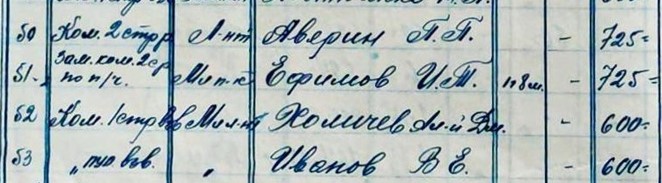 50 Ком. 2 стр. р Л-нт Аверин П. П. - 725=
51- Зам. ком. 2 ср по п/ч. Мл п-к Ефимов И. Т. - 725=
52 Ком. 1 стр. Мл л-нт Хомичев Ал-й Дм. - 600=
53 " Иванов В Е. - 600=